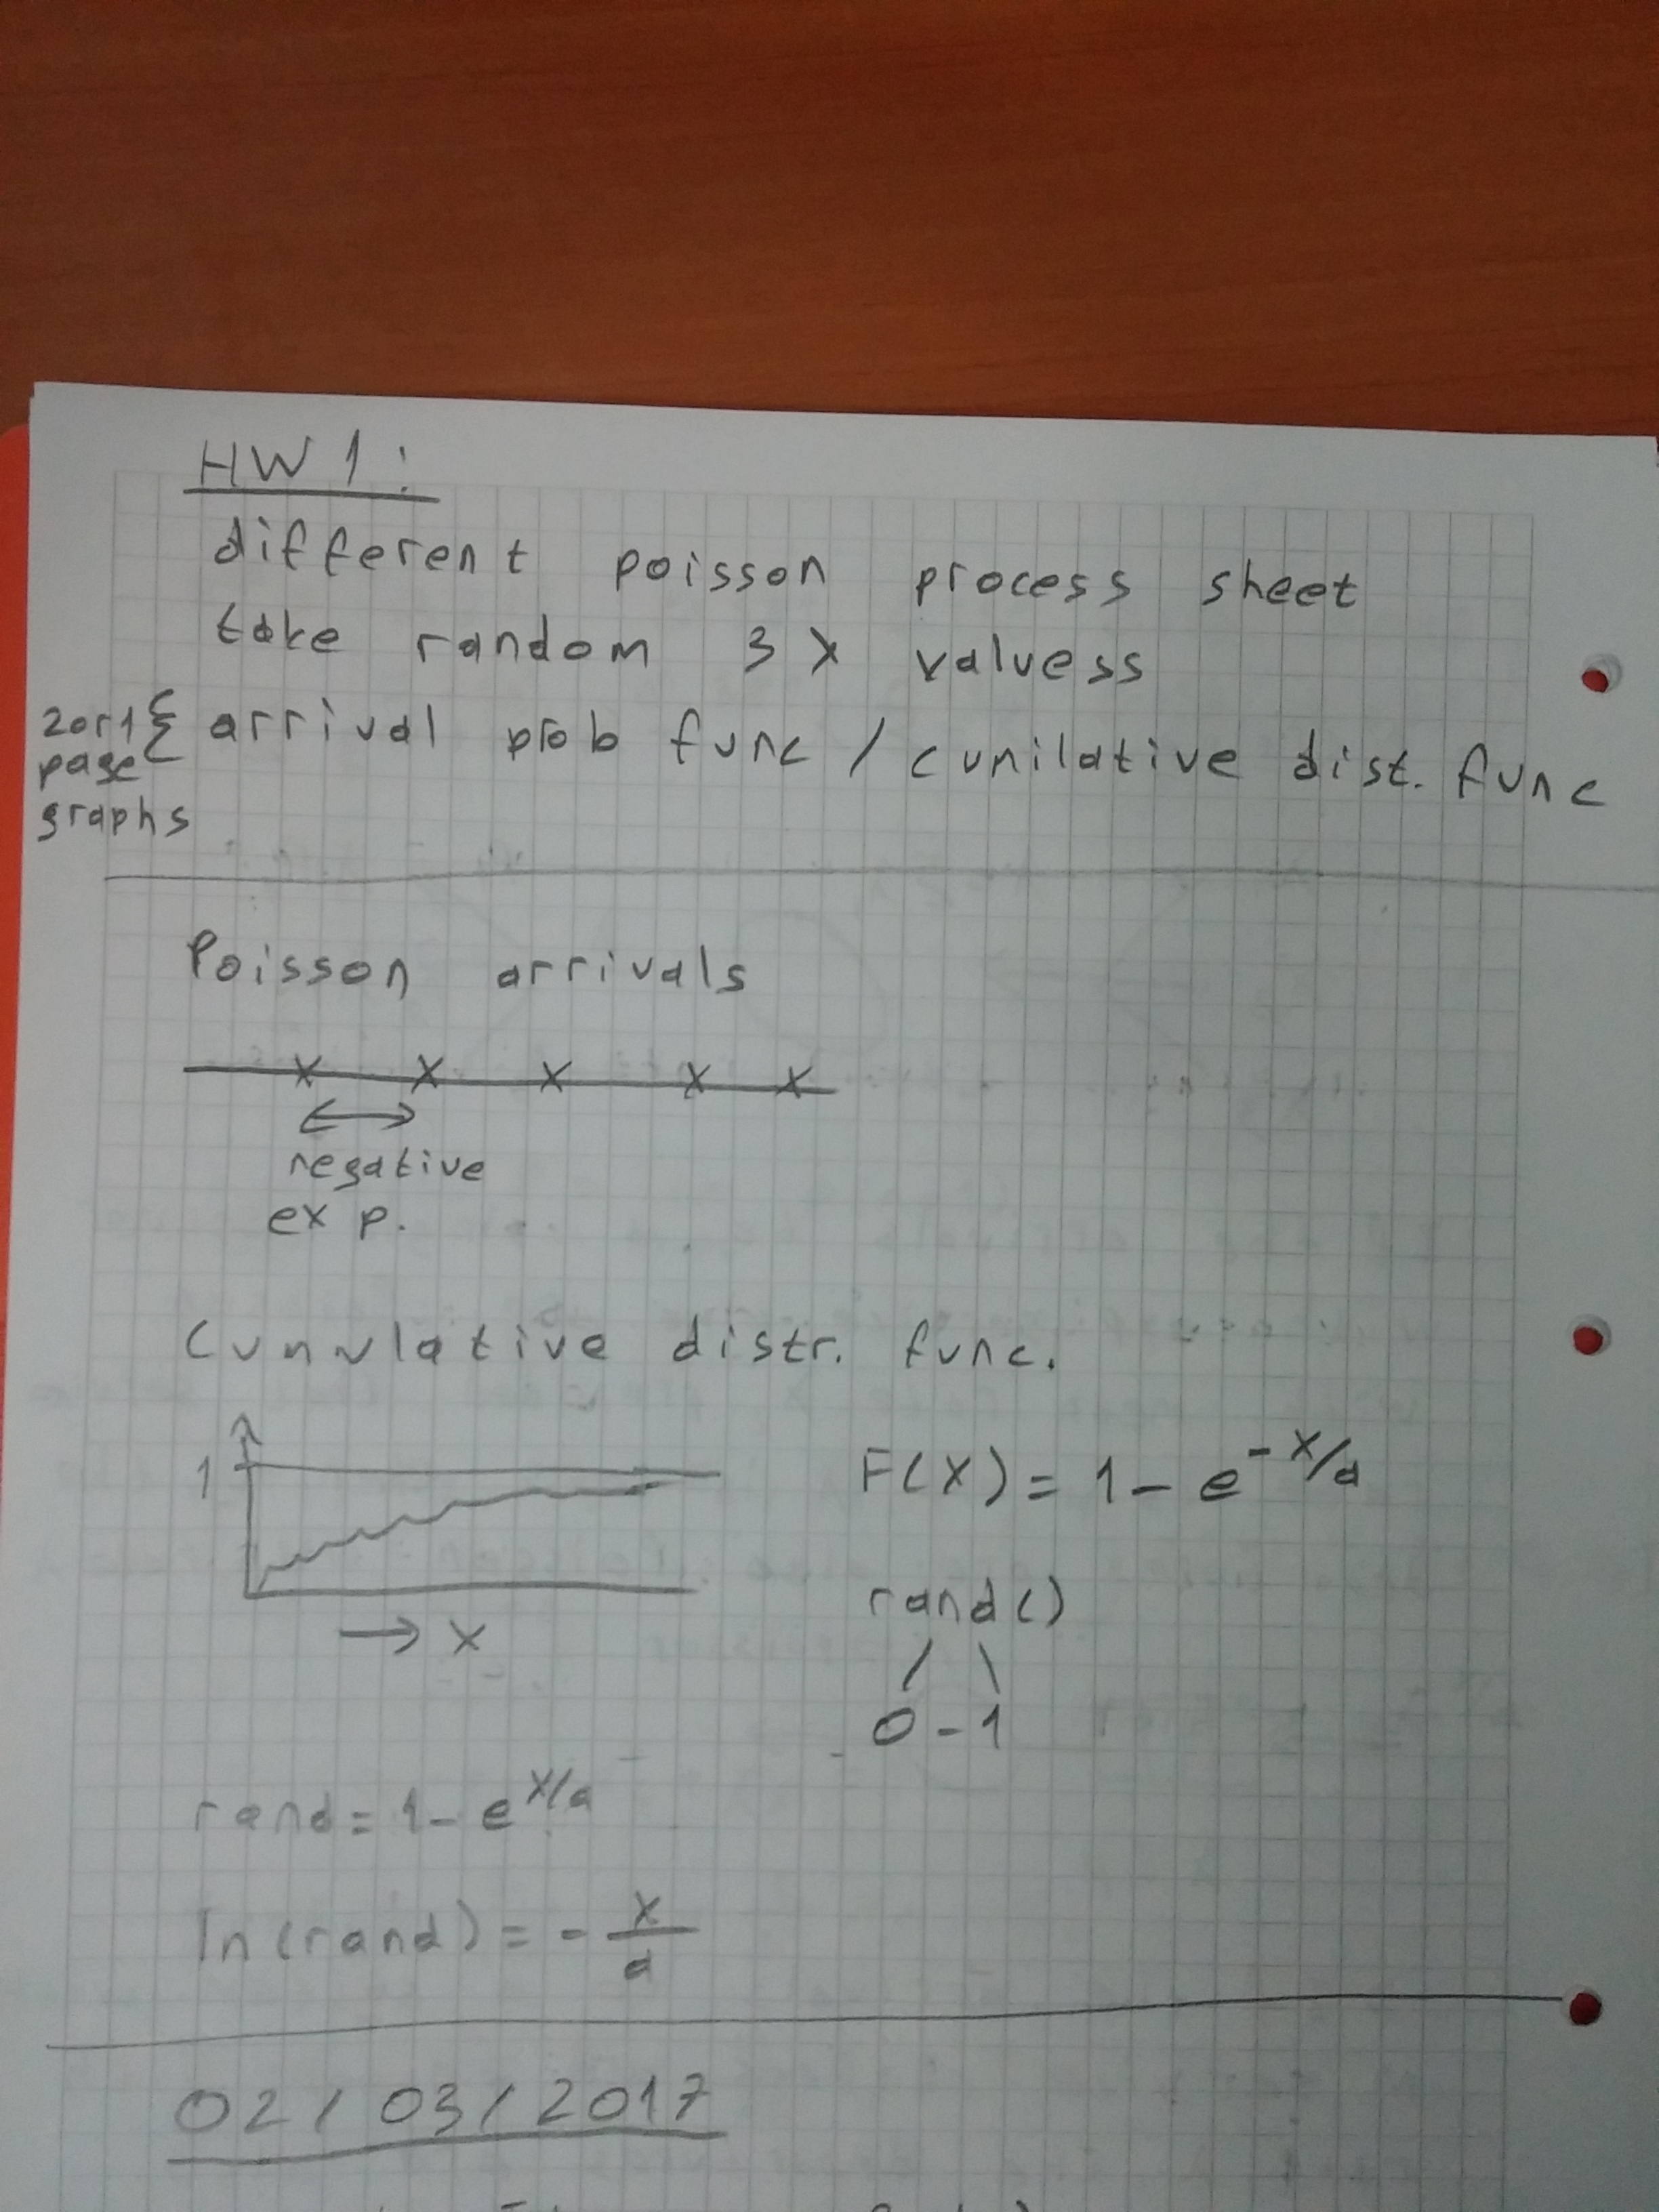 HW 1 :
different poisson process sheet
take random 3 x valuess
2 or 1 page graphs { arrival prob func / cumilative dist. func
Poisson arrivals
x x x x x
negative
exp.
Cunulative distr. func.
1
→ x
F(x) = 1 - e^-x/a
rand()
0 - 1
rand = 1 - e^x/a
ln(rand) = - x/a
02 / 03 / 2017